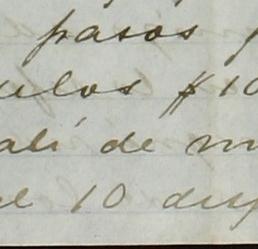 pasos
ulos $10
alí de m
el 10 des